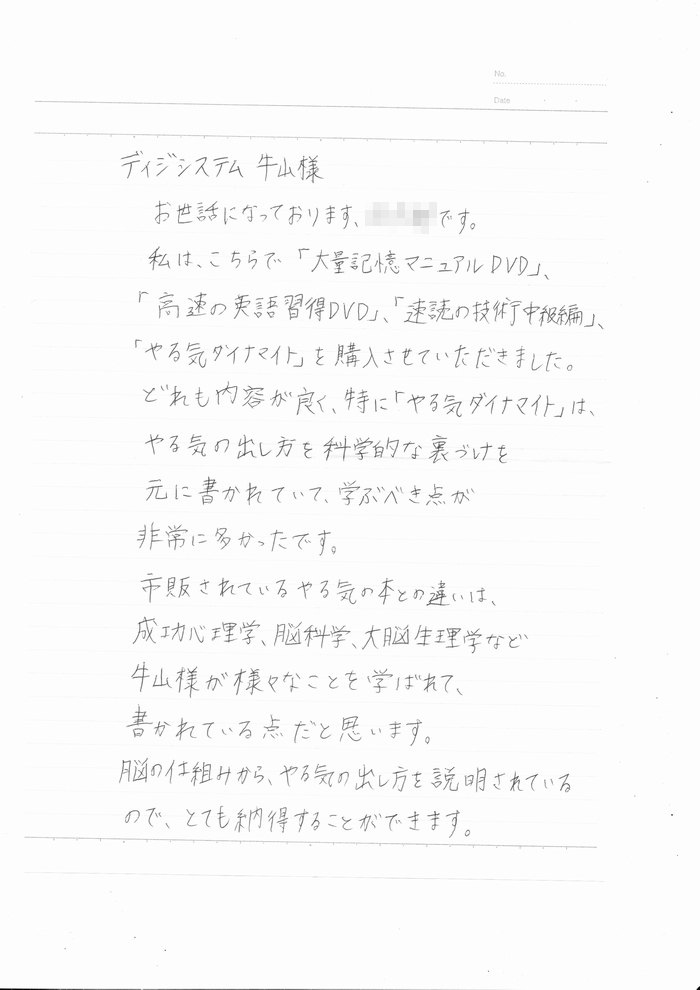 No.
Date
ディジシステム 牛山様
お世話になっております、です。
私は、こちらで「大量記憶マニュアルDVD」、
「高速の英語習得DVD」、「速読の技術中級編」、
「やる気ダイナマイト」を購入させていただきました。
どれも内容が良く、特に「やる気ダイナマイト」は、
やる気の出し方を科学的な裏づけを
元に書かれていて、学ぶべき点が
非常に多かったです。
市販されているやる気の本との違いは、
成功心理学、脳科学、大脳生理学など
牛山様が様々なことを学ばれて、
書かれている点だと思います。
脳の仕組みから、やる気の出し方を説明されている
ので、とても納得することができます。